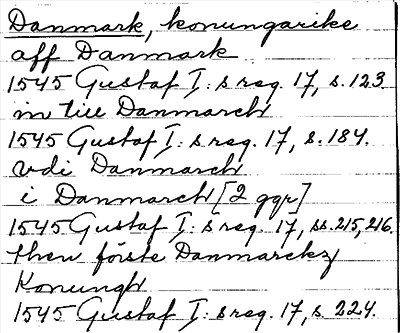 Danmark, konungarike
aff Danmark
1545 Gustaf I:s reg. 17, s. 123.
in till Danmarch
1545 Gustaf I:s reg. 17, s. 184.
vdi Danmarch
i Danmarch [2 ggr]
1545 Gustaf I:s reg. 17, ss. 215, 216.
then förste Danmarckz
Konungh
1545 Gustaf I:s reg. 17, s. 224.